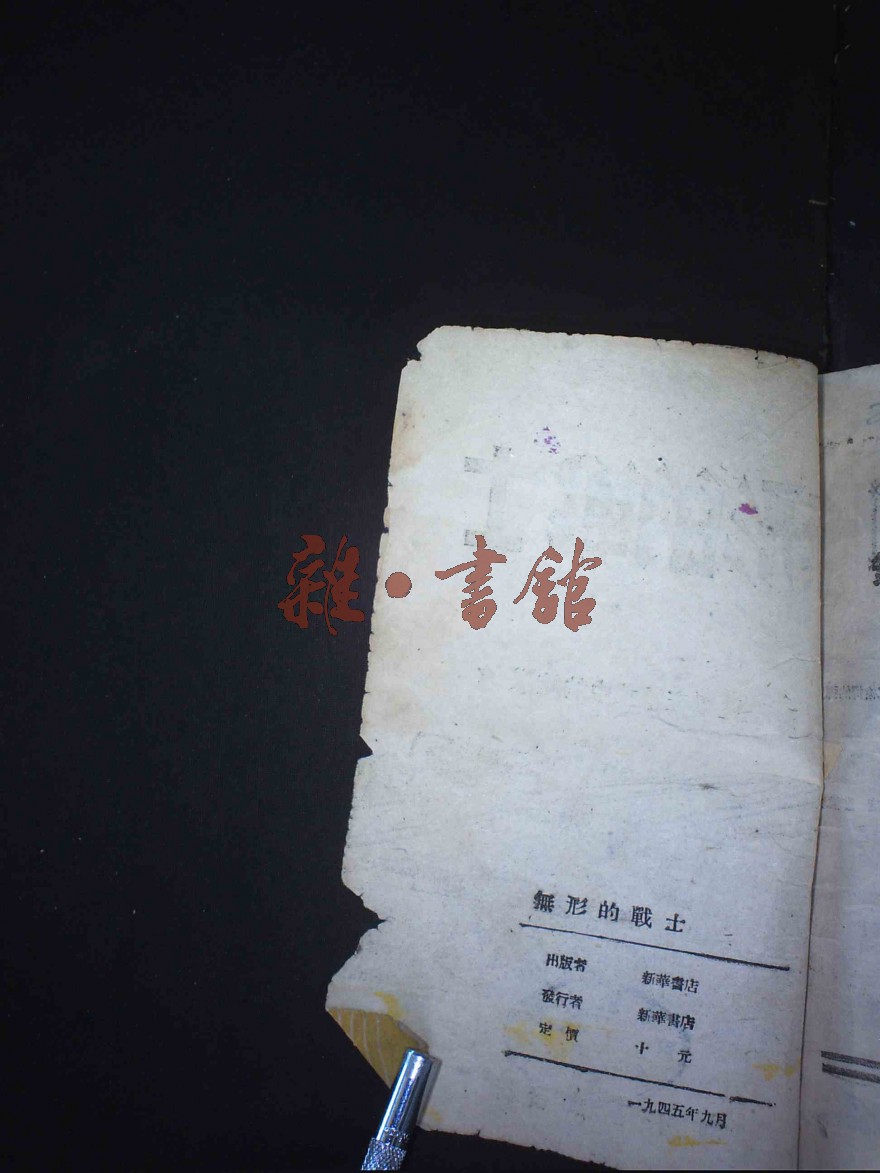 雜·書館
無形的戰士
出版者 新華書店
發行者 新華書店
定價 十元
一九四五年九月